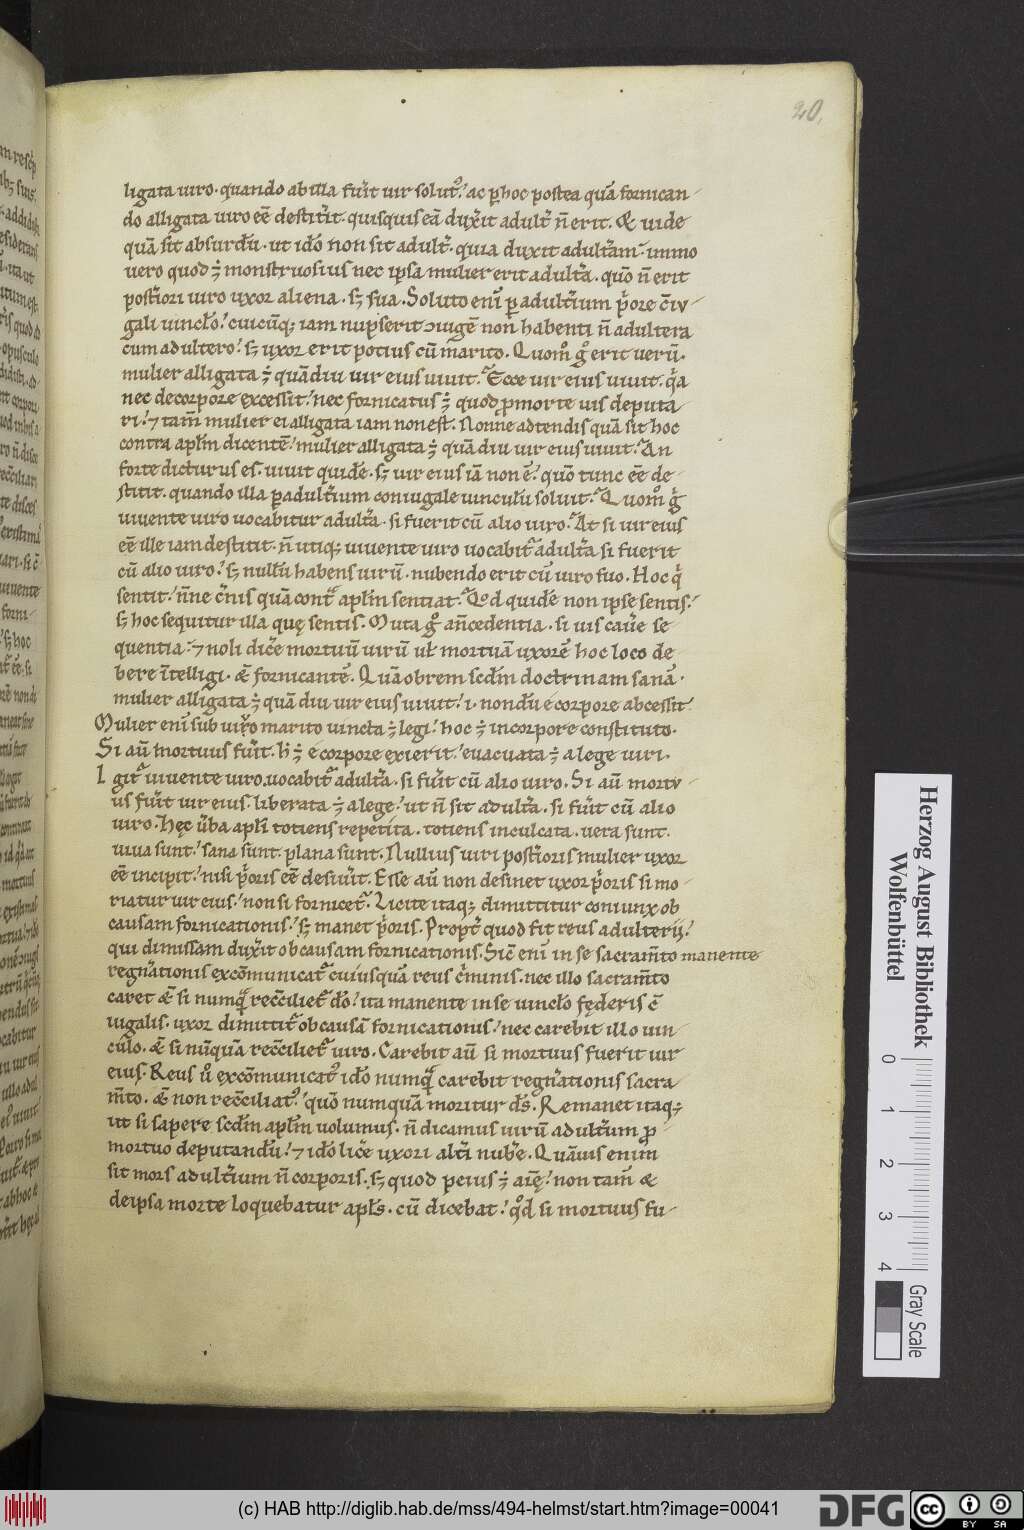 20.
ligata uiro. quando ab illa fuĩt uir solut᷒. ac ꝑ hoc postea quā fornican-
do alligata uiro eē destitĩt. quisquis eā duxĩt adult̃ ñ erit. & uide
quā sit absurdū. ut idõ non sit adult̃. quia duxit adult̃am. immo
uero quod ÷ monstruosius nec ipsa mulier erit adult̃a. quō ñ erit
post̃iori uiro uxor aliena. sꝫ sua. Soluto enī ꝑ adult̃ium p̃ore c̄iu-
gali uinclo. cuicūqꝫ iam nupserit ↄiugē non habenti ñ adultera
cum adultero. sꝫ uxor erit potius cū marito. Quom° g° erit uerū.
mulier alligata ÷ quādiu uir eius uiuit. Ecce uir eius uiuit. q̃a
nec de corpore excessit. nec fornicatus ÷ quod ꝓ morte uis deputa
ri. ⁊ tam̄ mulier ei alligata iam non est. Nonne adtendis quā sit hoc
contra apl̄m dicentē. mulier alligata ÷ quā diu uir eius uiuit. An
forte dicturus es. uiuit quidē. sꝫ uir eius iā non ē. quō tunc eē de-
stitit. quando illa ꝑ adult̃ium coniugale uinculū soluit. Quom° g̃
uiuente uiro uocabitur adult̃a. si fuerit cū alio uiro. At si uir eius
eē ille iam destitit. ñ utiqꝫ uiuente uiro uocabit̃ adult̃a si fuerit
cū alio uiro. sꝫ nullū habens uirū. nubendo erit cū uiro suo. Hoc q̃
sentit. ñne c̃nis quā cont̃ apl̄m sentiat. Qd quidē non ipse sentis.
sꝫ hoc sequitur illa quę sentis. Muta g° añcedentia. si uis cauẽe se-
quentia. ⁊ noli dicẽe mortuū uirū ul̄ mortuā uxorē hoc loco de-
bere ĩtelligi. & fornicantē. Quāobrem scd̄m doctrinam sanā.
mulier alligata ÷ quā diu uir eius uiuit. i. nondū e corpore abcessit
Mulier enī sub uiro marito uincta ÷ legi. hoc ÷ in corpore constituto.
Si aū mortuus fuĩt. h ÷ e corpore exierit. euacuata ÷ a lege uiri.
Igit̃ uiuente uiro. uocabit̃ adult̃a. si fuĩt cū alio uiro. Si aū mortu-
us fuĩt uir eius. liberata ÷ a lege. ut ñ sit adult̃a. si fuĩt cū alio
uiro. Hęc ũba apl̄i totiens repetita. totiens inculcata. uera sunt.
uiua sunt. sana sunt. plana sunt. Nullius uiri post̃ioris mulier uxor
eē incipit. nisi p̃oris eē desiuĩt. Esse aū non desinet uxor p̃oris si mo-
riatur uir eius. non si fornicet̃. Licite itaqꝫ dimittitur coniunx ob
causam fornicationis. sꝫ manet p̃oris. Propt̃ quod fit reus adulterij.
qui dimissam duxĩt ob causam fornicationis. Sic̄ enī in se sacram̄to manente
regñationis excōmunicat̃ cuiusquā reus c̃minis. nec illo sacram̄to
caret & si numq̃ recc̄iliet̃ dō. ita manente in se uinclo fęderis c̄
iugalis. uxor dimittit̃ ob causā fornicationis. nec carebit illo uin-
culo. & si nūquā recc̄iliet̃ uiro. Carebit aū si mortuus fuerit uir
eius. Reus u° excōmunicat᷒ idō numq̃ carebit regñationis sacra
m̄to. & non recc̄iliat᷒. quō numquā moritur ds̄. Remanet itaqꝫ
ut si sapere scd̄m apl̄m uolumus. ñ dicamus uirū adult̃um ꝓ
mortuo deputandū. ⁊ idō licẽe uxori alt̃i nubẽe. Quāuis enim
sit mors adult̃ium ñ corporis. sꝫ quod peius ÷ aīę. non tam̄ &
de ipsa morte loquebatur apl̄s. cū dicebat. qđ si mortuus fu-
Herzog August Bibliothek
Wolfenbüttel
0 1 2 3 4
Gray Scale
(c) HAB http://diglib.hab.de/mss/494-helmst/start.htm?image=00041
DFG
cc BY SA